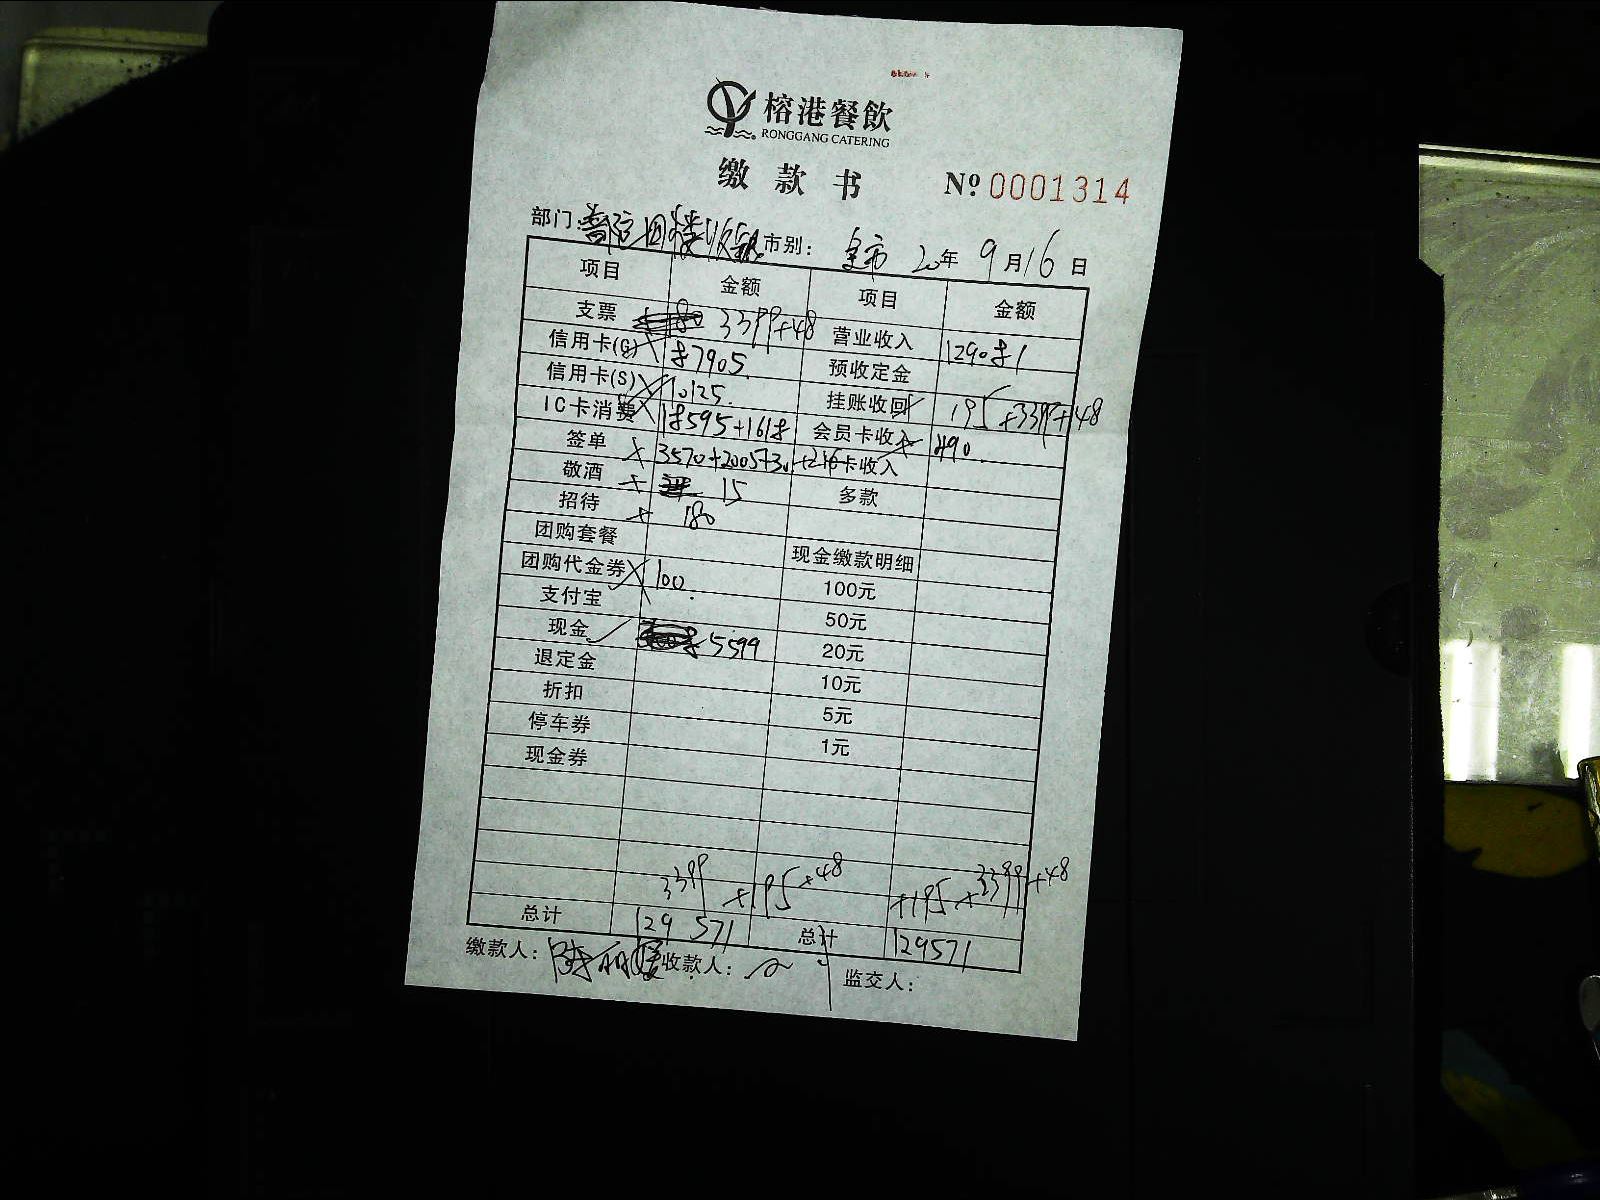 榕港餐飲
RONGGANG CATERING
缴款书 Nº 0001314
部门: 市别: 20年 9月16日
项目 金额 项目 金额
支票 3399+48 营业收入 129081
信用卡(G) 87905 预收定金
信用卡(S) 10125 挂账收回 195+3399+48
IC卡消费 18595+1618 会员卡收入 490
签单 3570+2005+30+216 卡收入
敬酒 15 多款
招待 180
团购套餐 现金缴款明细
团购代金券 100 100元
支付宝 50元
现金 5599 20元
退定金 10元
折扣 5元
停车券 1元
现金券
3399+195+48 +195+3399+48
总计 129571 总计 129571
缴款人: 收款人: 监交人: